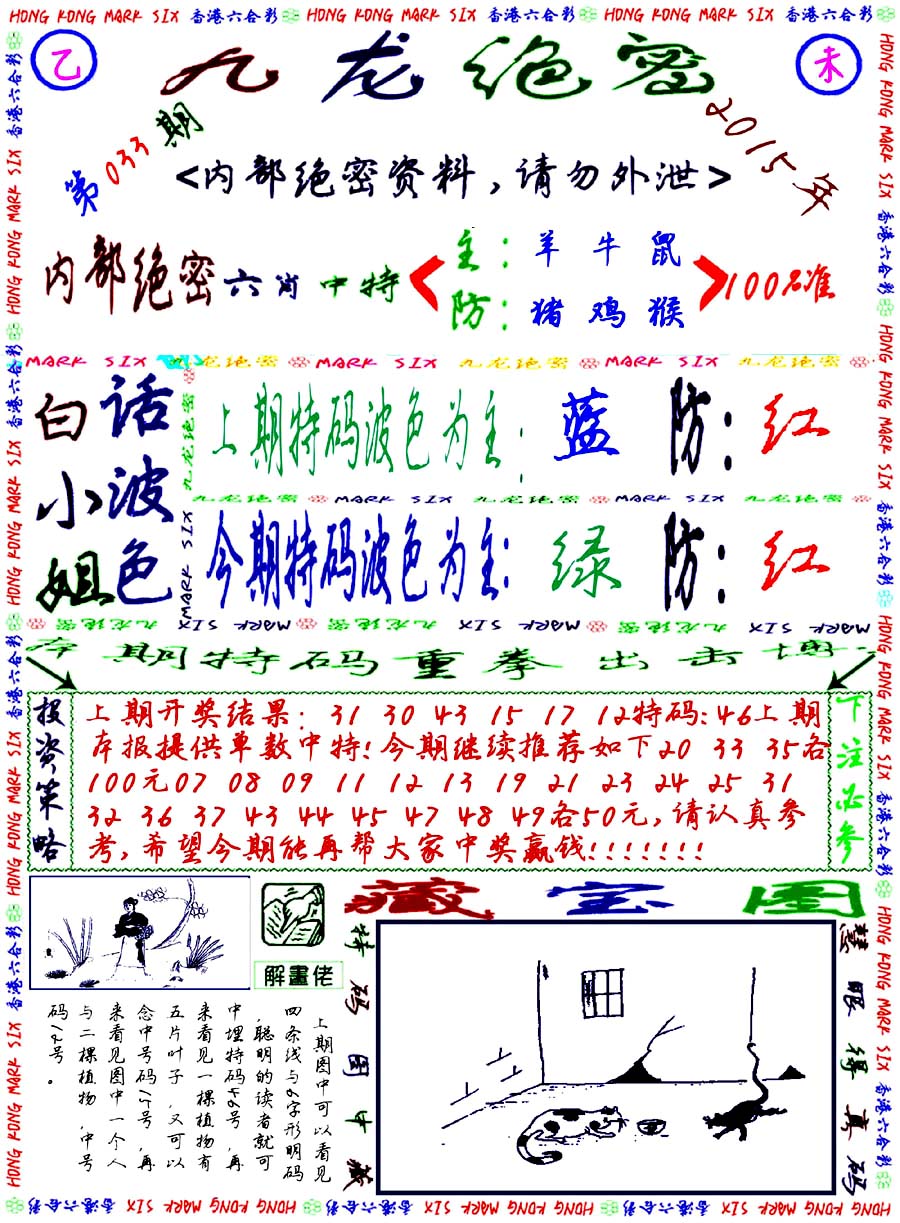 HONG KONG MARK SIX 香港六合彩 HONG KONG MARK SIX 香港六合彩 HONG KONG MARK SIX 香港六合彩
乙
九龙绝密
未
第033期
2015年
<内部绝密资料,请勿外泄>
内部绝密六肖中特
主:羊牛鼠
防:猪鸡猴
100%准
MARK SIX 九龙绝密 MARK SIX 九龙绝密 MARK SIX 九龙绝密
白话
小波
姐色
九龙绝密 MARK SIX
上期特码波色为主:蓝 防:红
九龙绝密 MARK SIX 九龙绝密 MARK SIX 九龙绝密
今期特码波色为主:绿 防:红
九龙绝密 MARK SIX 九龙绝密 MARK SIX 九龙绝密 MARK SIX
本期特码重拳出击博
投资策略
上期开奖结果:31 30 43 15 17 12特码:46上期
本报提供单数中特!今期继续推荐如下20 33 35各
100元07 08 09 11 12 13 19 21 23 24 25 31
32 36 37 43 44 45 47 48 49各50元,请认真参
考,希望今期能再帮大家中奖赢钱!!!!!!!
下注必参
解畫佬
藏宝图
上期图中可以看见
四条线与6字形明码
,聪明的读者就可
中埋特码46号,再
来看见一棵植物有
五片叶子,又可以
念中号码15号,再
来看见图中一个人
与二棵植物,中号
码12号。
特码图中藏
慧眼得真码
HONG KONG MARK SIX 香港六合彩 HONG KONG MARK SIX 香港六合彩 HONG KONG MARK SIX 香港六合彩